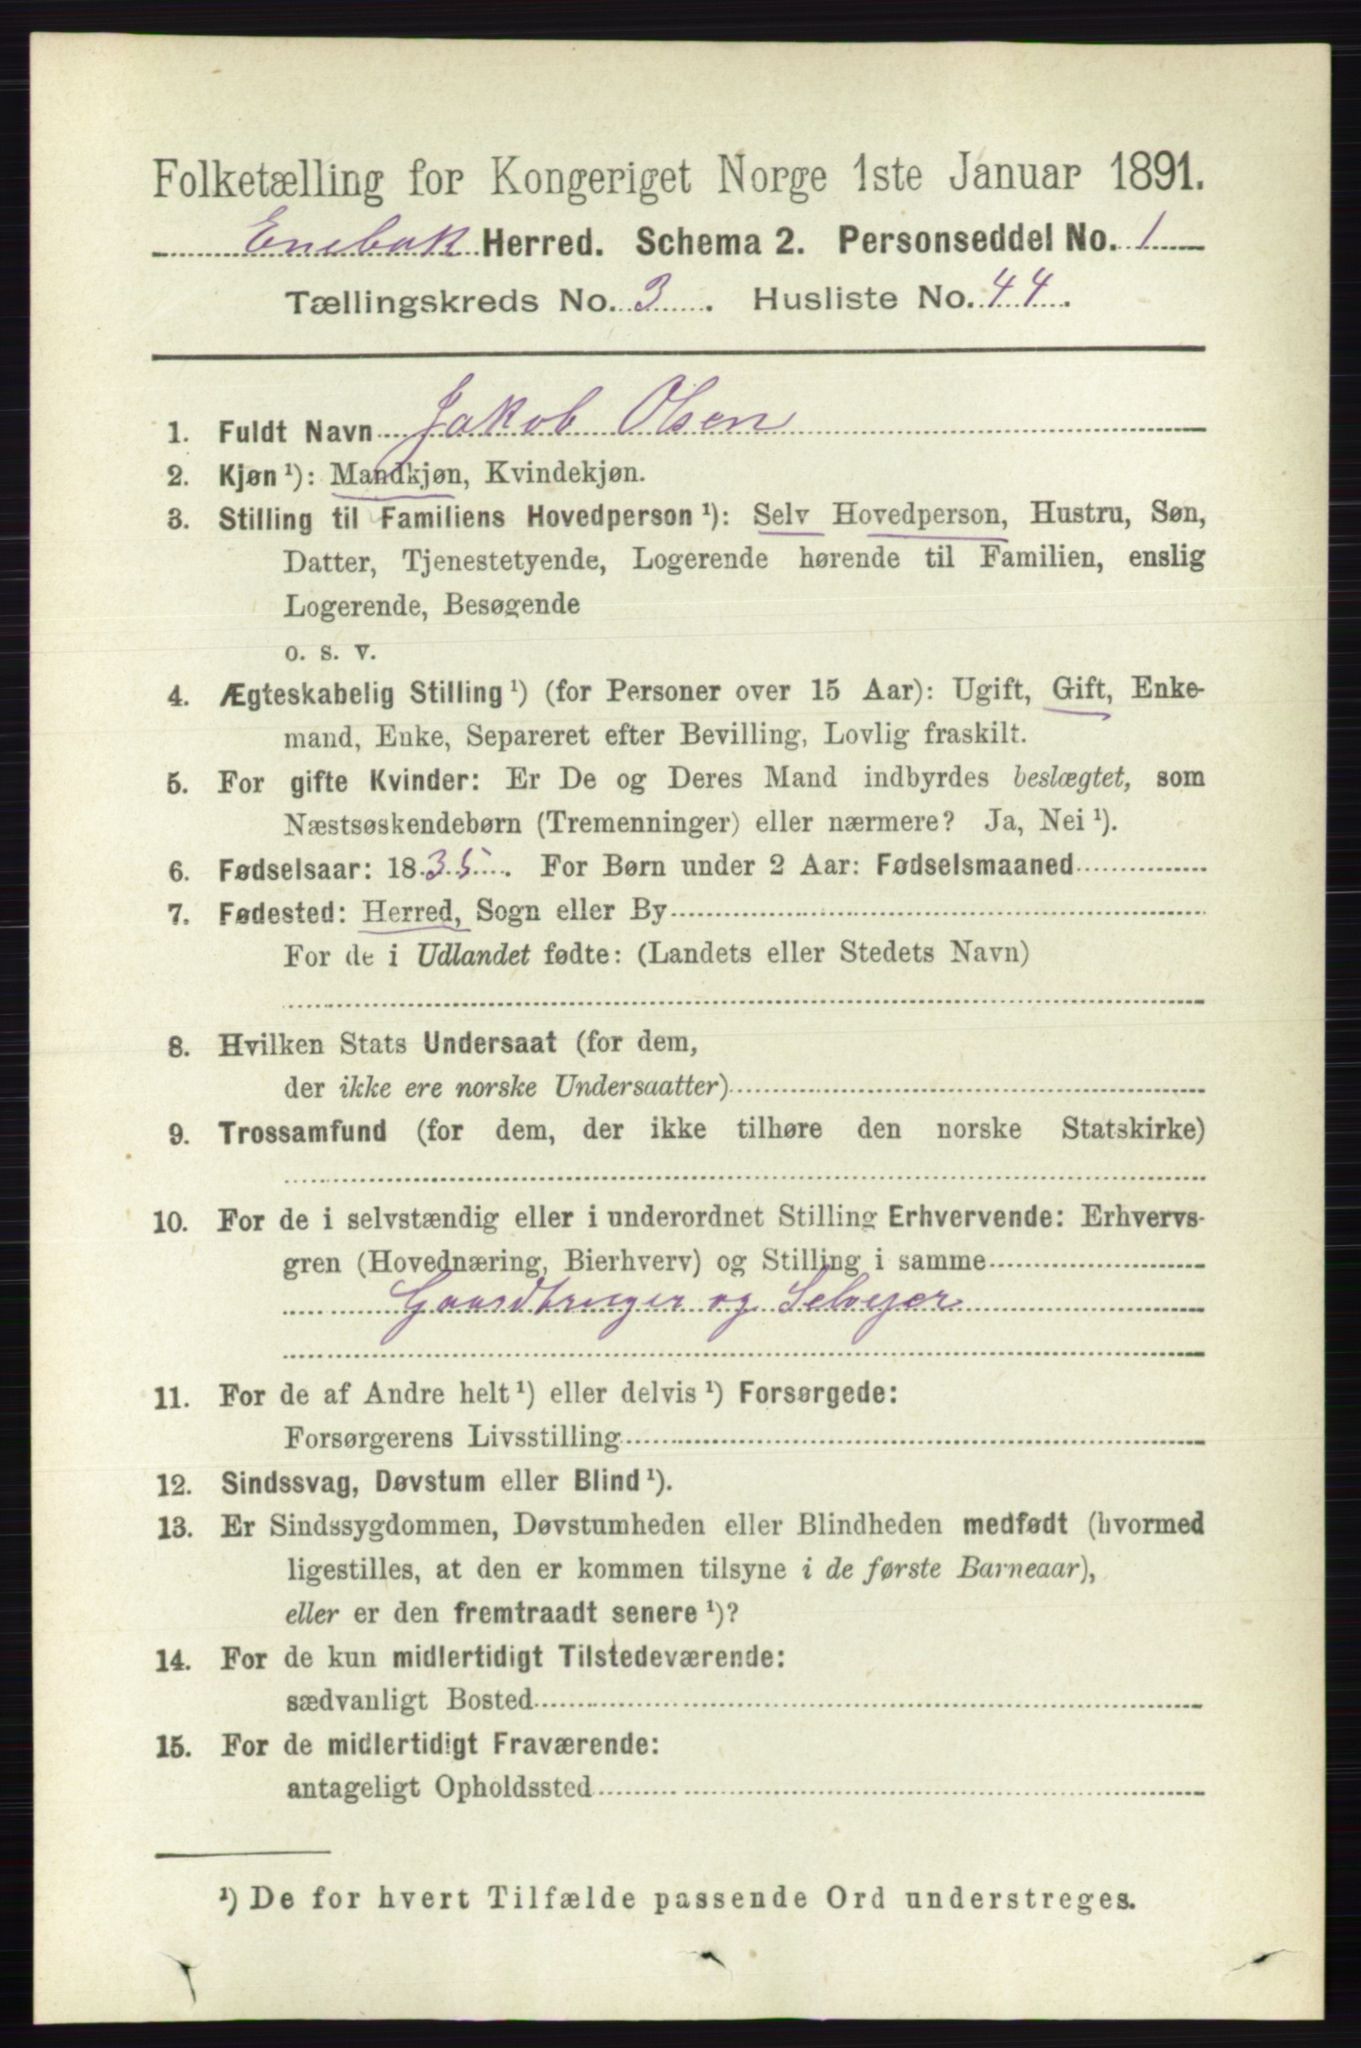 Folketælling for Kongeriget Norge 1ste Januar 1891.
Enebak Herred. Schema 2. Personseddel No. 1
Tællingskreds No. 3. Husliste No. 44.
1. Fuldt Navn Jakob Olsen
2. Kjøn ¹): Mandkjøn, Kvindekjøn.
3. Stilling til Familiens Hovedperson ¹): Selv Hovedperson, Hustru, Søn,
Datter, Tjenestetyende, Logerende hørende til Familien, enslig
Logerende, Besøgende
o. s. v.
4. Ægteskabelig Stilling ¹) (for Personer over 15 Aar): Ugift, Gift, Enke-
mand, Enke, Separeret efter Bevilling, Lovlig fraskilt.
5. For gifte Kvinder: Er De og Deres Mand indbyrdes beslægtet, som
Næstsøskendebørn (Tremenninger) eller nærmere? Ja, Nei ¹).
6. Fødselsaar: 1835. For Børn under 2 Aar: Fødselsmaaned
7. Fødested: Herred, Sogn eller By
For de i Udlandet fødte: (Landets eller Stedets Navn)
8. Hvilken Stats Undersaat (for dem,
der ikke ere norske Undersaatter)
9. Trossamfund (for dem, der ikke tilhøre den norske Statskirke)
10. For de i selvstændig eller i underordnet Stilling Erhvervende: Erhvervs-
gren (Hovednæring, Bierhverv) og Stilling i samme
Gaardbruger og Selvejer
11. For de af Andre helt ¹) eller delvis ¹) Forsørgede:
Forsørgerens Livsstilling
12. Sindssvag, Døvstum eller Blind ¹).
13. Er Sindssygdommen, Døvstumheden eller Blindheden medfødt (hvormed
ligestilles, at den er kommen tilsyne i de første Barneaar),
eller er den fremtraadt senere ¹)?
14. For de kun midlertidigt Tilstedeværende:
sædvanligt Bosted
15. For de midlertidigt Fraværende:
antageligt Opholdssted
¹) De for hvert Tilfælde passende Ord understreges.